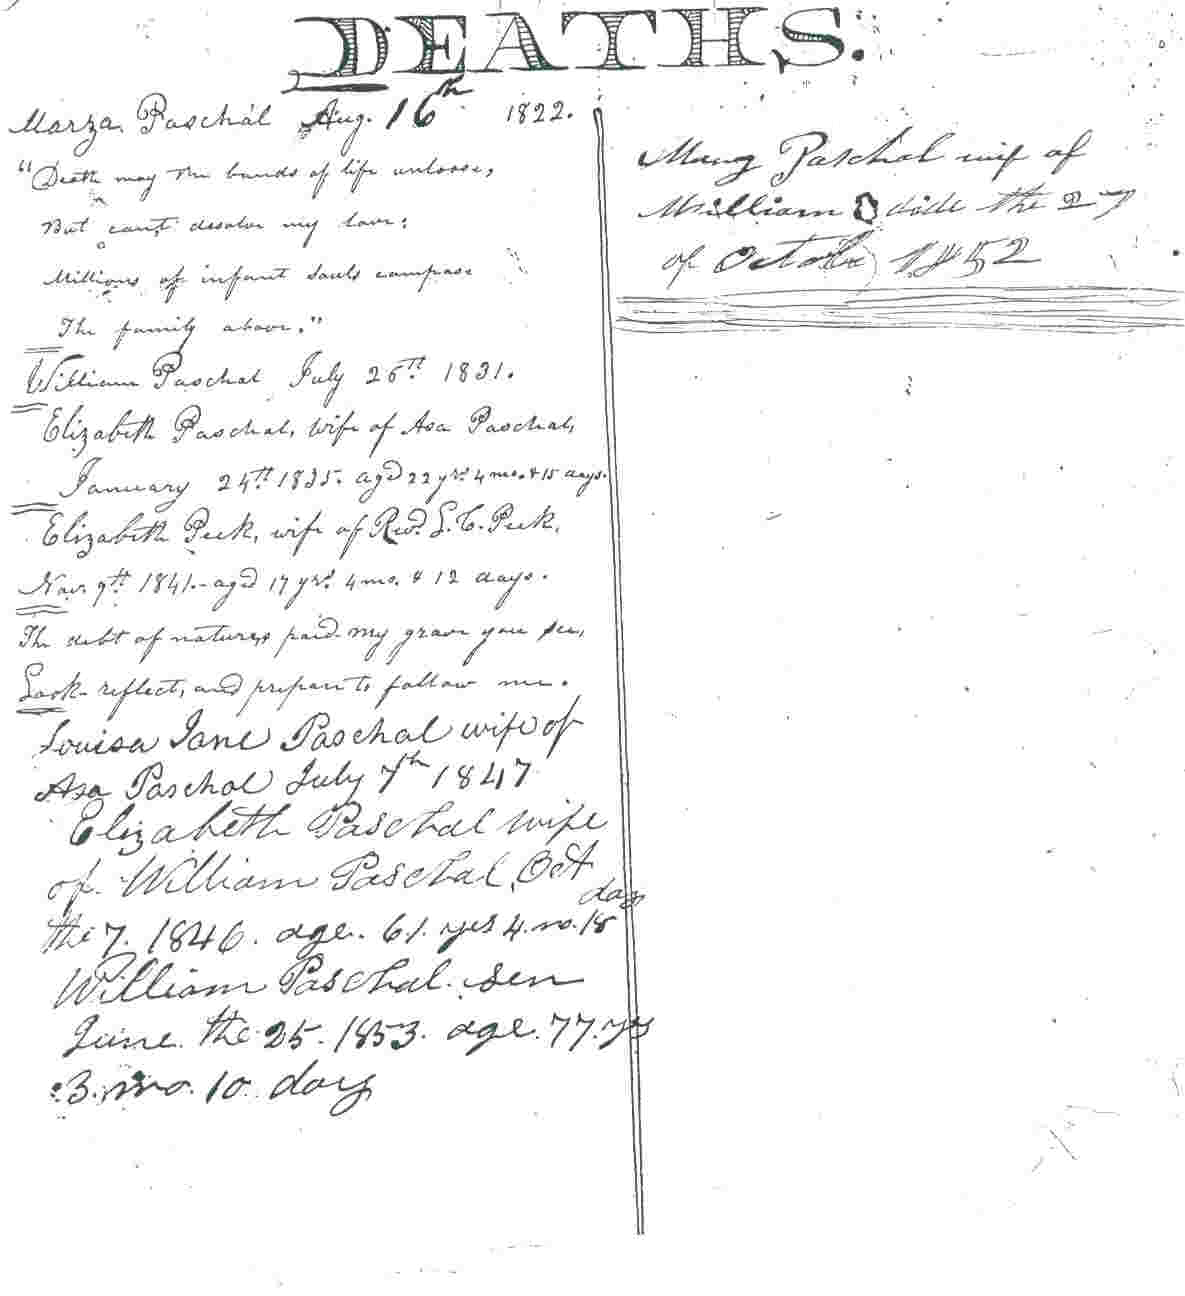 DEATHS.
Marza Paschal Aug. 16th 1822.
"Death may the bands of life unloose,
But can't desolve my love:
Millions of infant souls compose
The family above."
William Paschal July 26th 1831.
Elizabeth Paschal, wife of Asa Paschal,
January 24th 1835. aged 22 yrs 4 mo. & 15 days.
Elizabeth Peek, wife of Revd. L. C. Peek,
Nov. 9th 1841.- aged 17 yrs 4 mo. & 12 days.
The debt of nature's paid my grave you see,
Look reflect, and prepare to follow me.
Louisa Jane Paschal wife of
Asa Paschal July 7th 1847
Elizabeth Paschal wife
of William Paschal, Oct
the 7. 1846. age. 61. yrs 4. mo. 18 day
William Paschal. sen
June. the 25. 1853. age. 77. ys
3. mo. 10 day
Paschal wif of
William dide the 27
of October 1852